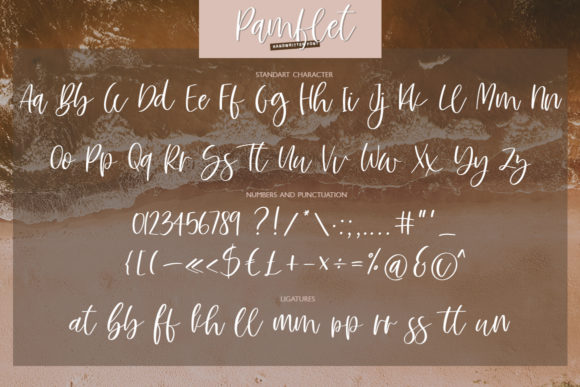 Pamflet
HANDWRITTEN FONT
STANDART CHARACTER
Aa Bb Cc Dd Ee Ff Gg Hh Ii Jj Kk Ll Mm Nn
Oo Pp Qq Rr Ss Tt Uu Vv Ww Xx Yy Zz
NUMBERS AND PUNCTUATION
0123456789 ?!/*\·:;,.... #"'_
{[(—«<$€£+-×÷=%@&©^
LIGATURES
at bb ff hh ll mm pp rr ss tt un